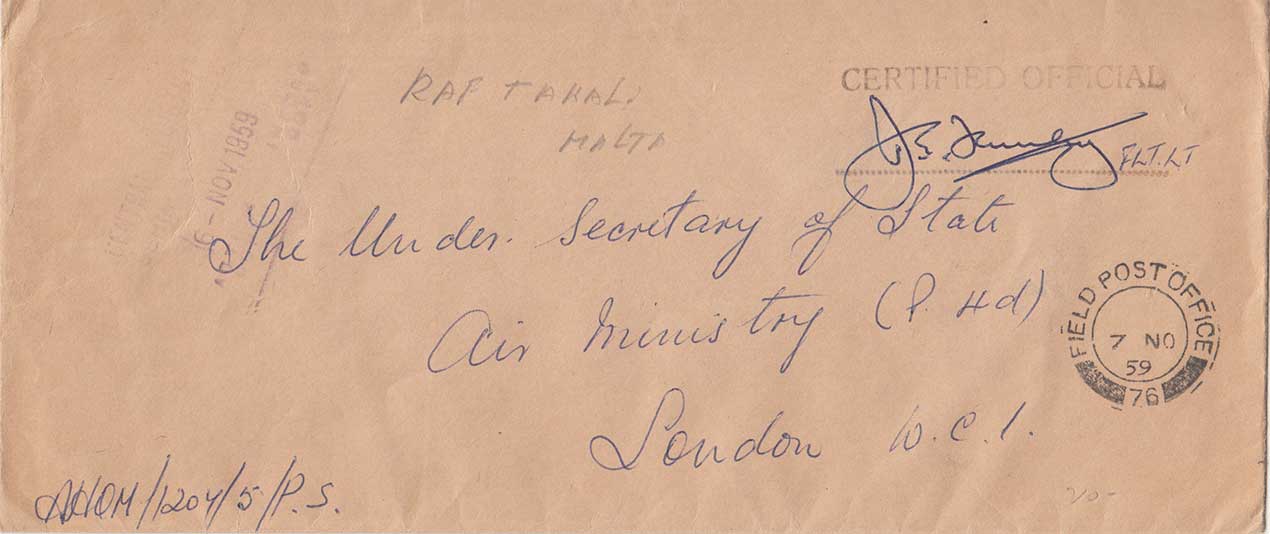 CERTIFIED OFFICIAL
RAF TAKALI
MALTA
FLT. LT
-9 NOV 1959
The Under. Secretary of State
Air Ministry (P. Hd)
London W.C.1.
FIELD POST OFFICE
7 NO
59
76
AHQM/1204/5/P.S.
20-